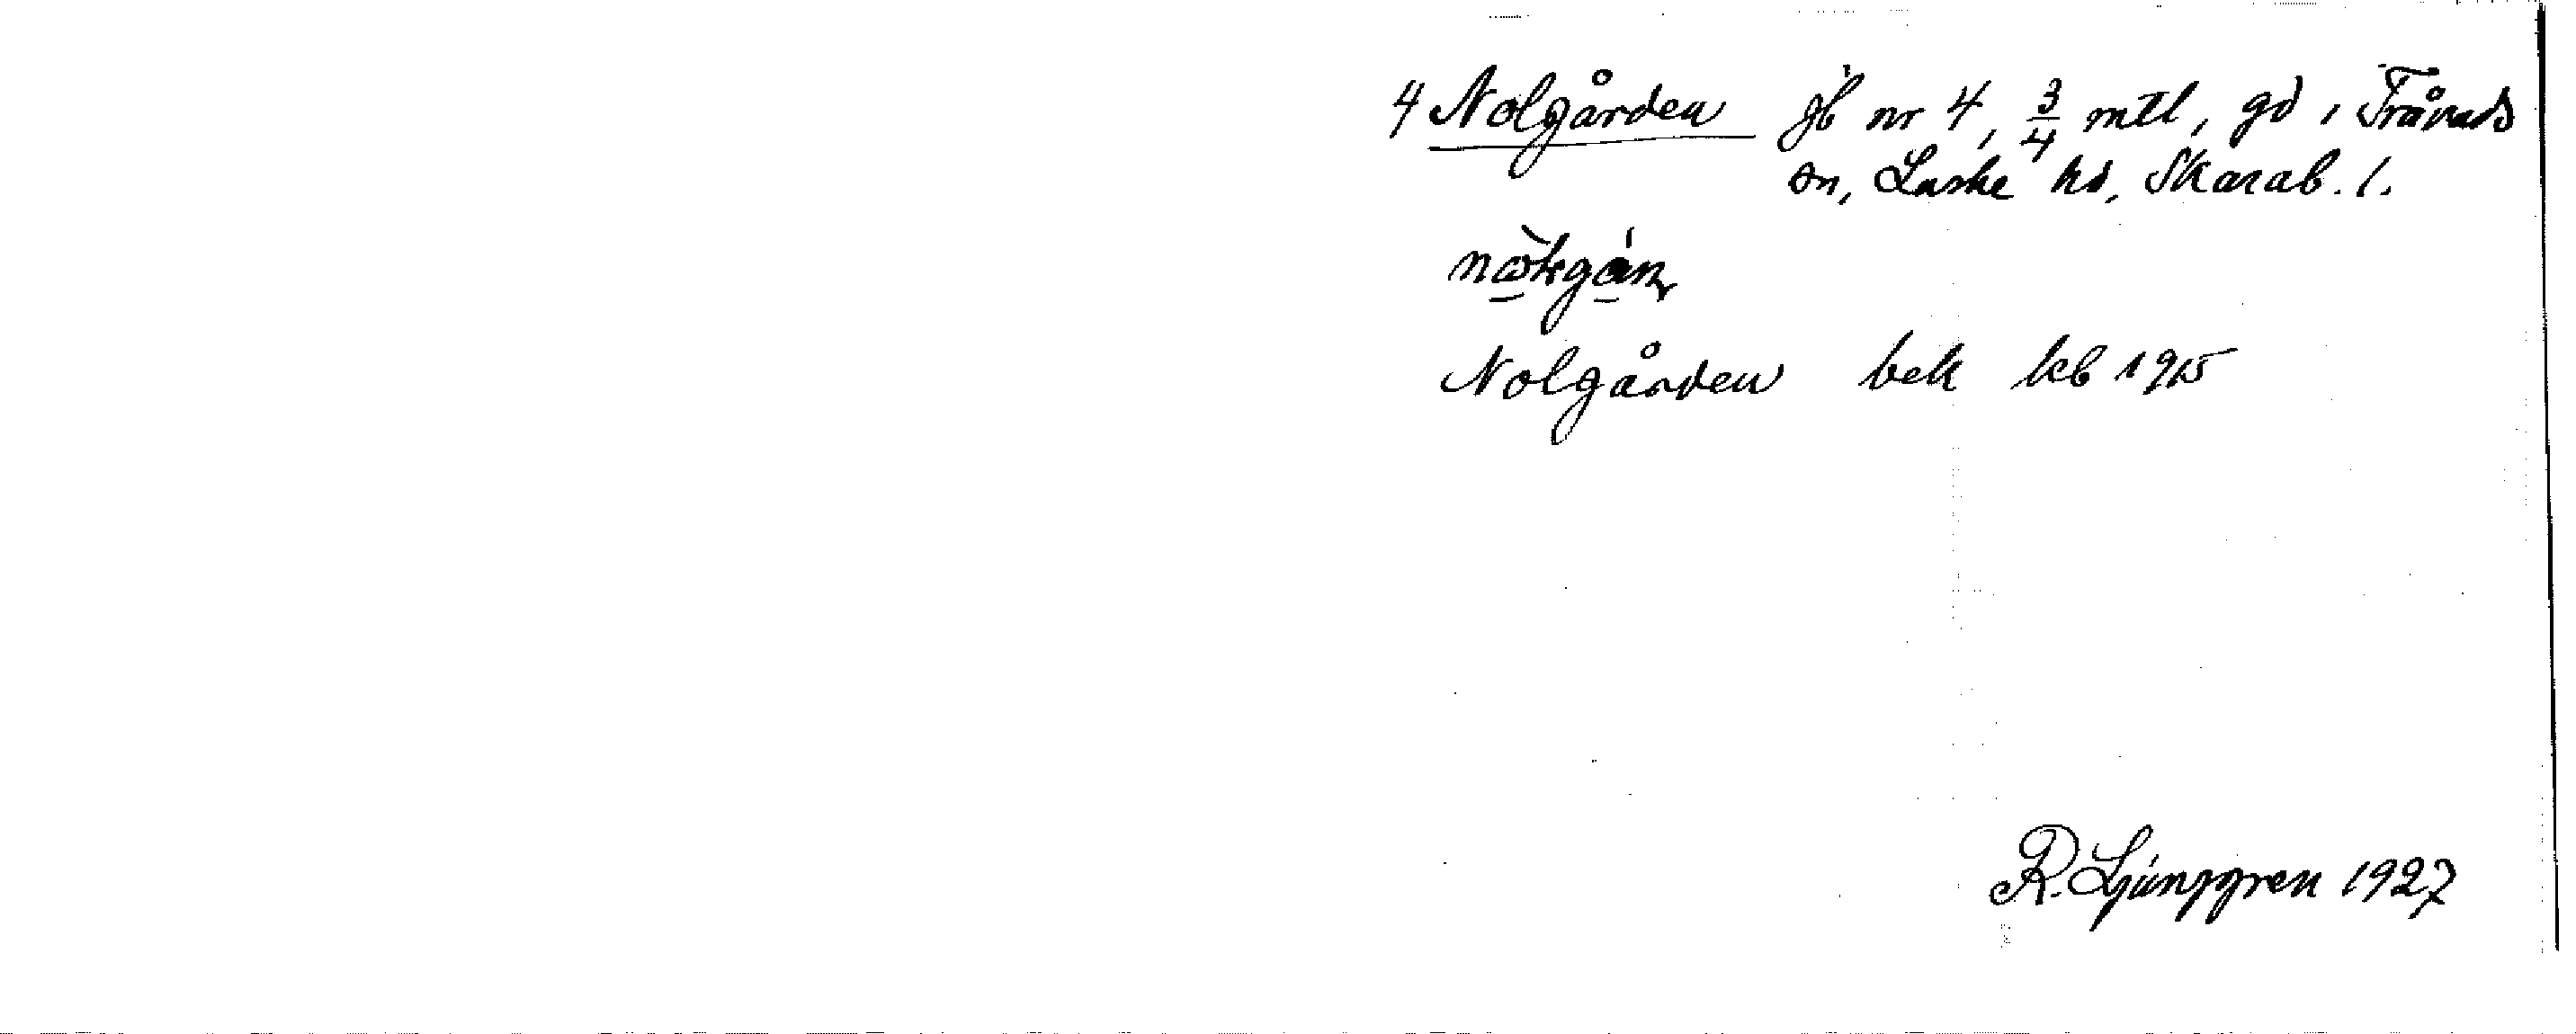 4 Nolgården jb nr 4, 3/4 mtl, gd i Tråvads
sn, Laske hd, Skarab. l.
Nolgården bek kb 1915
R. Ljunggren 1927